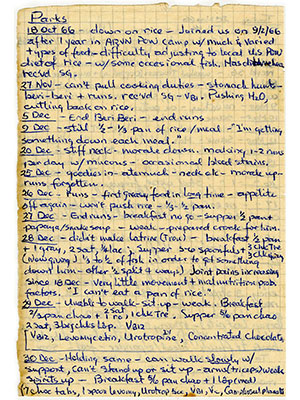 Parks
18 Oct 66 - down on rice - Joined us on 9/2/66
after 1 year in ARVN POW camp w/ much & varied
types of food - difficulty adjusting to local U.S. POW
diet of rice - w/ some occasional fish. Has
recvd SG.
27 Nov - can't pull cooking duties - stomach hurts -
beri-beri + runs. rec'vd SG - VB1. Pushing H2O,
cutting back on rice.
5 Dec - End Beri Beri - end runs
9 Dec - still 1/2 - 1/3 pan of rice/meal - "I'm getting
something down each meal."
20 Dec - stiff neck - morale down. making 1-2 runs
per day w/ mucous - occasional blood stains.
25 Dec - goodies in - atemuch - neck ok - morale up -
runs forgotten.
26 Dec - Runs - first greasy food in long time - appetite
off again - won't push rice - 1/3 - 1/2 pan.
27 Dec - End runs - breakfast no go - supper 1/2 pan +
papaya/snake soup - weak - prepared crock for him.
28 Dec - didn't make latrine (Trou) - breakfast 1/2 pan
+ 1 gray, 2 salt,
(Now giving) 1/3 to 1/2 of fish in order to get something
down him - other 1/2 split 4 ways) Joint pains increasing
since 18 Dec - very little movement + malnutrition prob.
factors. "I can't eat a pan of rice."
29 Dec - Unable to walk - sit up - weak. Breakfast
pan chao + Supper 5/6 pan chao
2 salt, VB12
VB12, Levomycetin, Urotropine, Concentrated chocolate
30 Dec - Holding same - can walk slowly w/
support, can't stand up or sit up - arms (triceps) weak
Spirits up - Breakfast 5/6 pan chao + 1
7 choc tabs, Levomy, Urotropine, VB12,